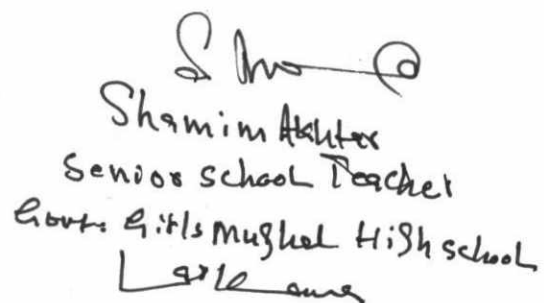 Shamim Akhter
Senior School Teacher
Govt. Girls Mughal High School
Larkana